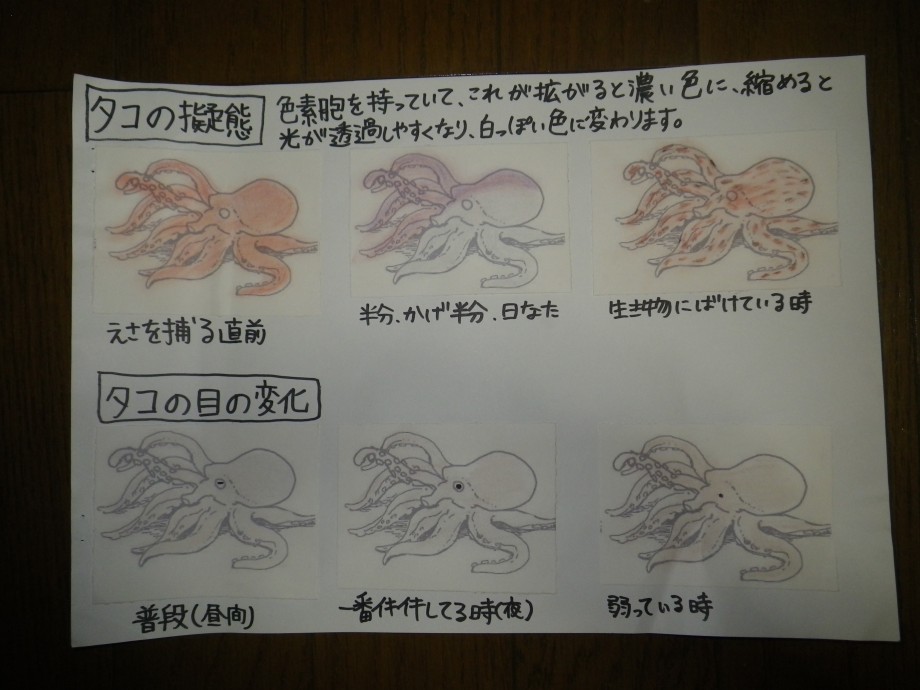 タコの擬態
色素胞を持っていて、これが拡がると濃い色に、縮めると
光が透過しやすくなり、白っぽい色に変わります。
えさを捕る直前
半分、かげ半分、日なた
生き物にばけている時
タコの目の変化
普段(昼間)
一番イキイキしてる時(夜)
弱っている時